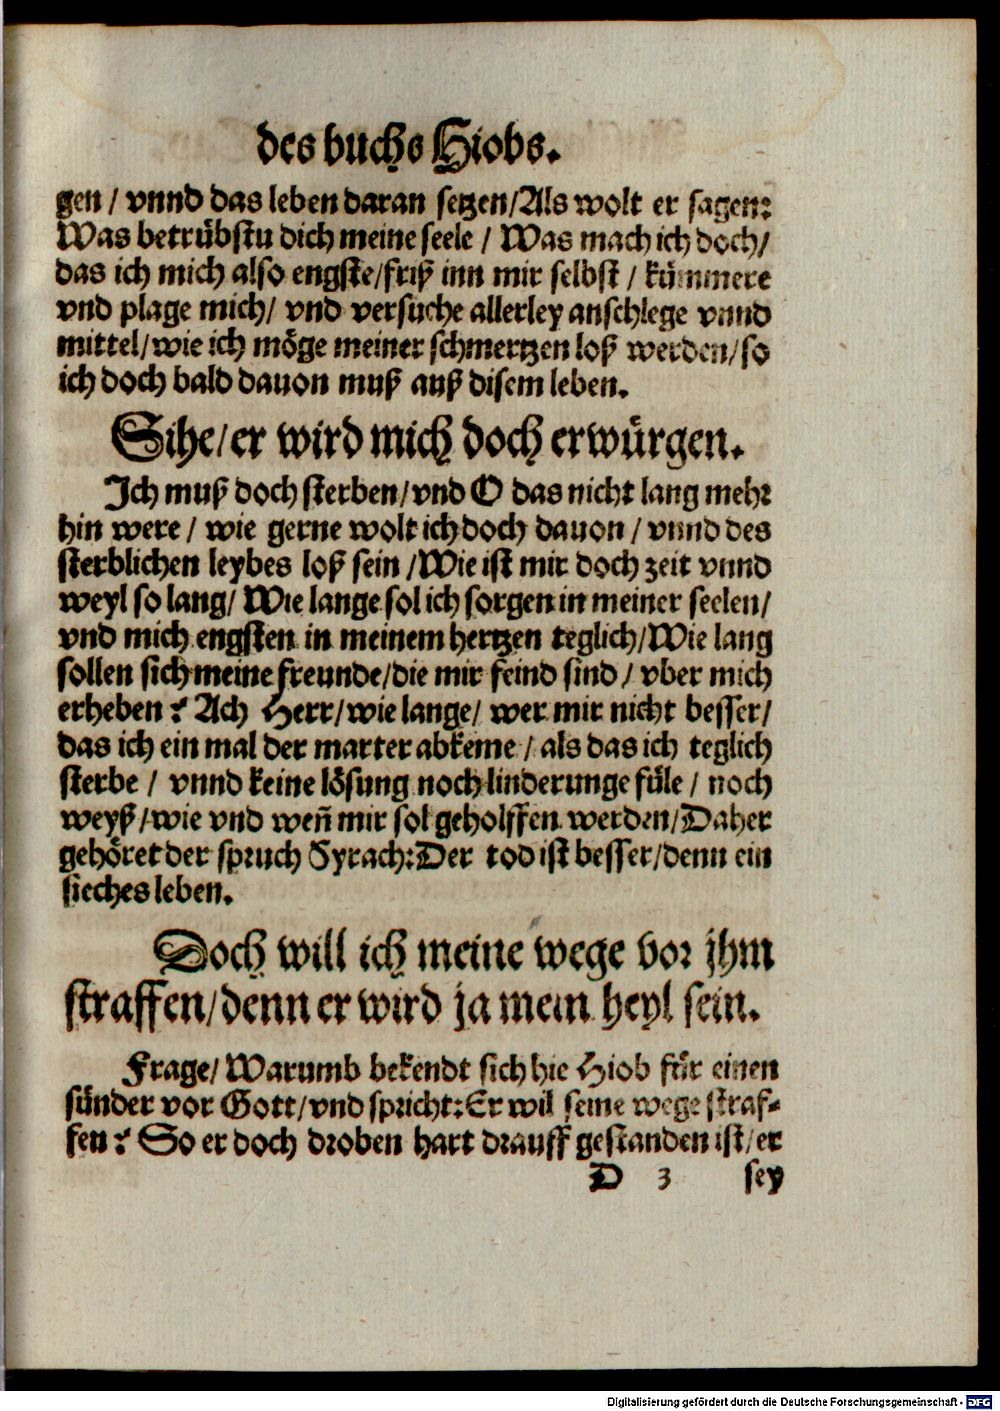 des buchs Hiobs.
gen / vnnd das leben daran setzen/Als wolt er sagen:
Was betrübstu dich meine seele / Was mach ich doch/
das ich mich also engste/friß inn mir selbst / kümmere
vnd plage mich/ vnd versuche allerley anschlege vnnd
mittel/wie ich möge meiner schmertzen loß werden/so
ich doch bald dauon muß auß disem leben.
Sihe/er wird mich doch erwürgen.
Ich muß doch sterben/vnd O das nicht lang mehr
hin were / wie gerne wolt ich doch dauon / vnnd des
sterblichen leybes loß sein /Wie ist mir doch zeit vnnd
weyl so lang/ Wie lange sol ich sorgen in meiner seelen/
vnd mich engsten in meinem hertzen teglich/Wie lang
sollen sich meine freunde/die mir feind sind / vber mich
erheben? Ach Herr/wie lange/ wer mir nicht besser/
das ich ein mal der marter abkeme / als das ich teglich
sterbe / vnnd keine lösung noch linderunge füle / noch
weyß/wie vnd weñ mir sol geholffen werden/Daher
gehöret der spruch Syrach:Der tod ist besser/denn ein
sieches leben.
Doch will ich meine wege vor jhm
straffen/denn er wird ja mein heyl sein.
Frage/ Warumb bekendt sich hie Hiob für einen
sünder vor Gott/vnd spricht:Er wil seine wege straf-
fen? So er doch droben hart drauff gestanden ist/er
D 3 sey
Digitalisierung gefördert durch die Deutsche Forschungsgemeinschaft - DFG